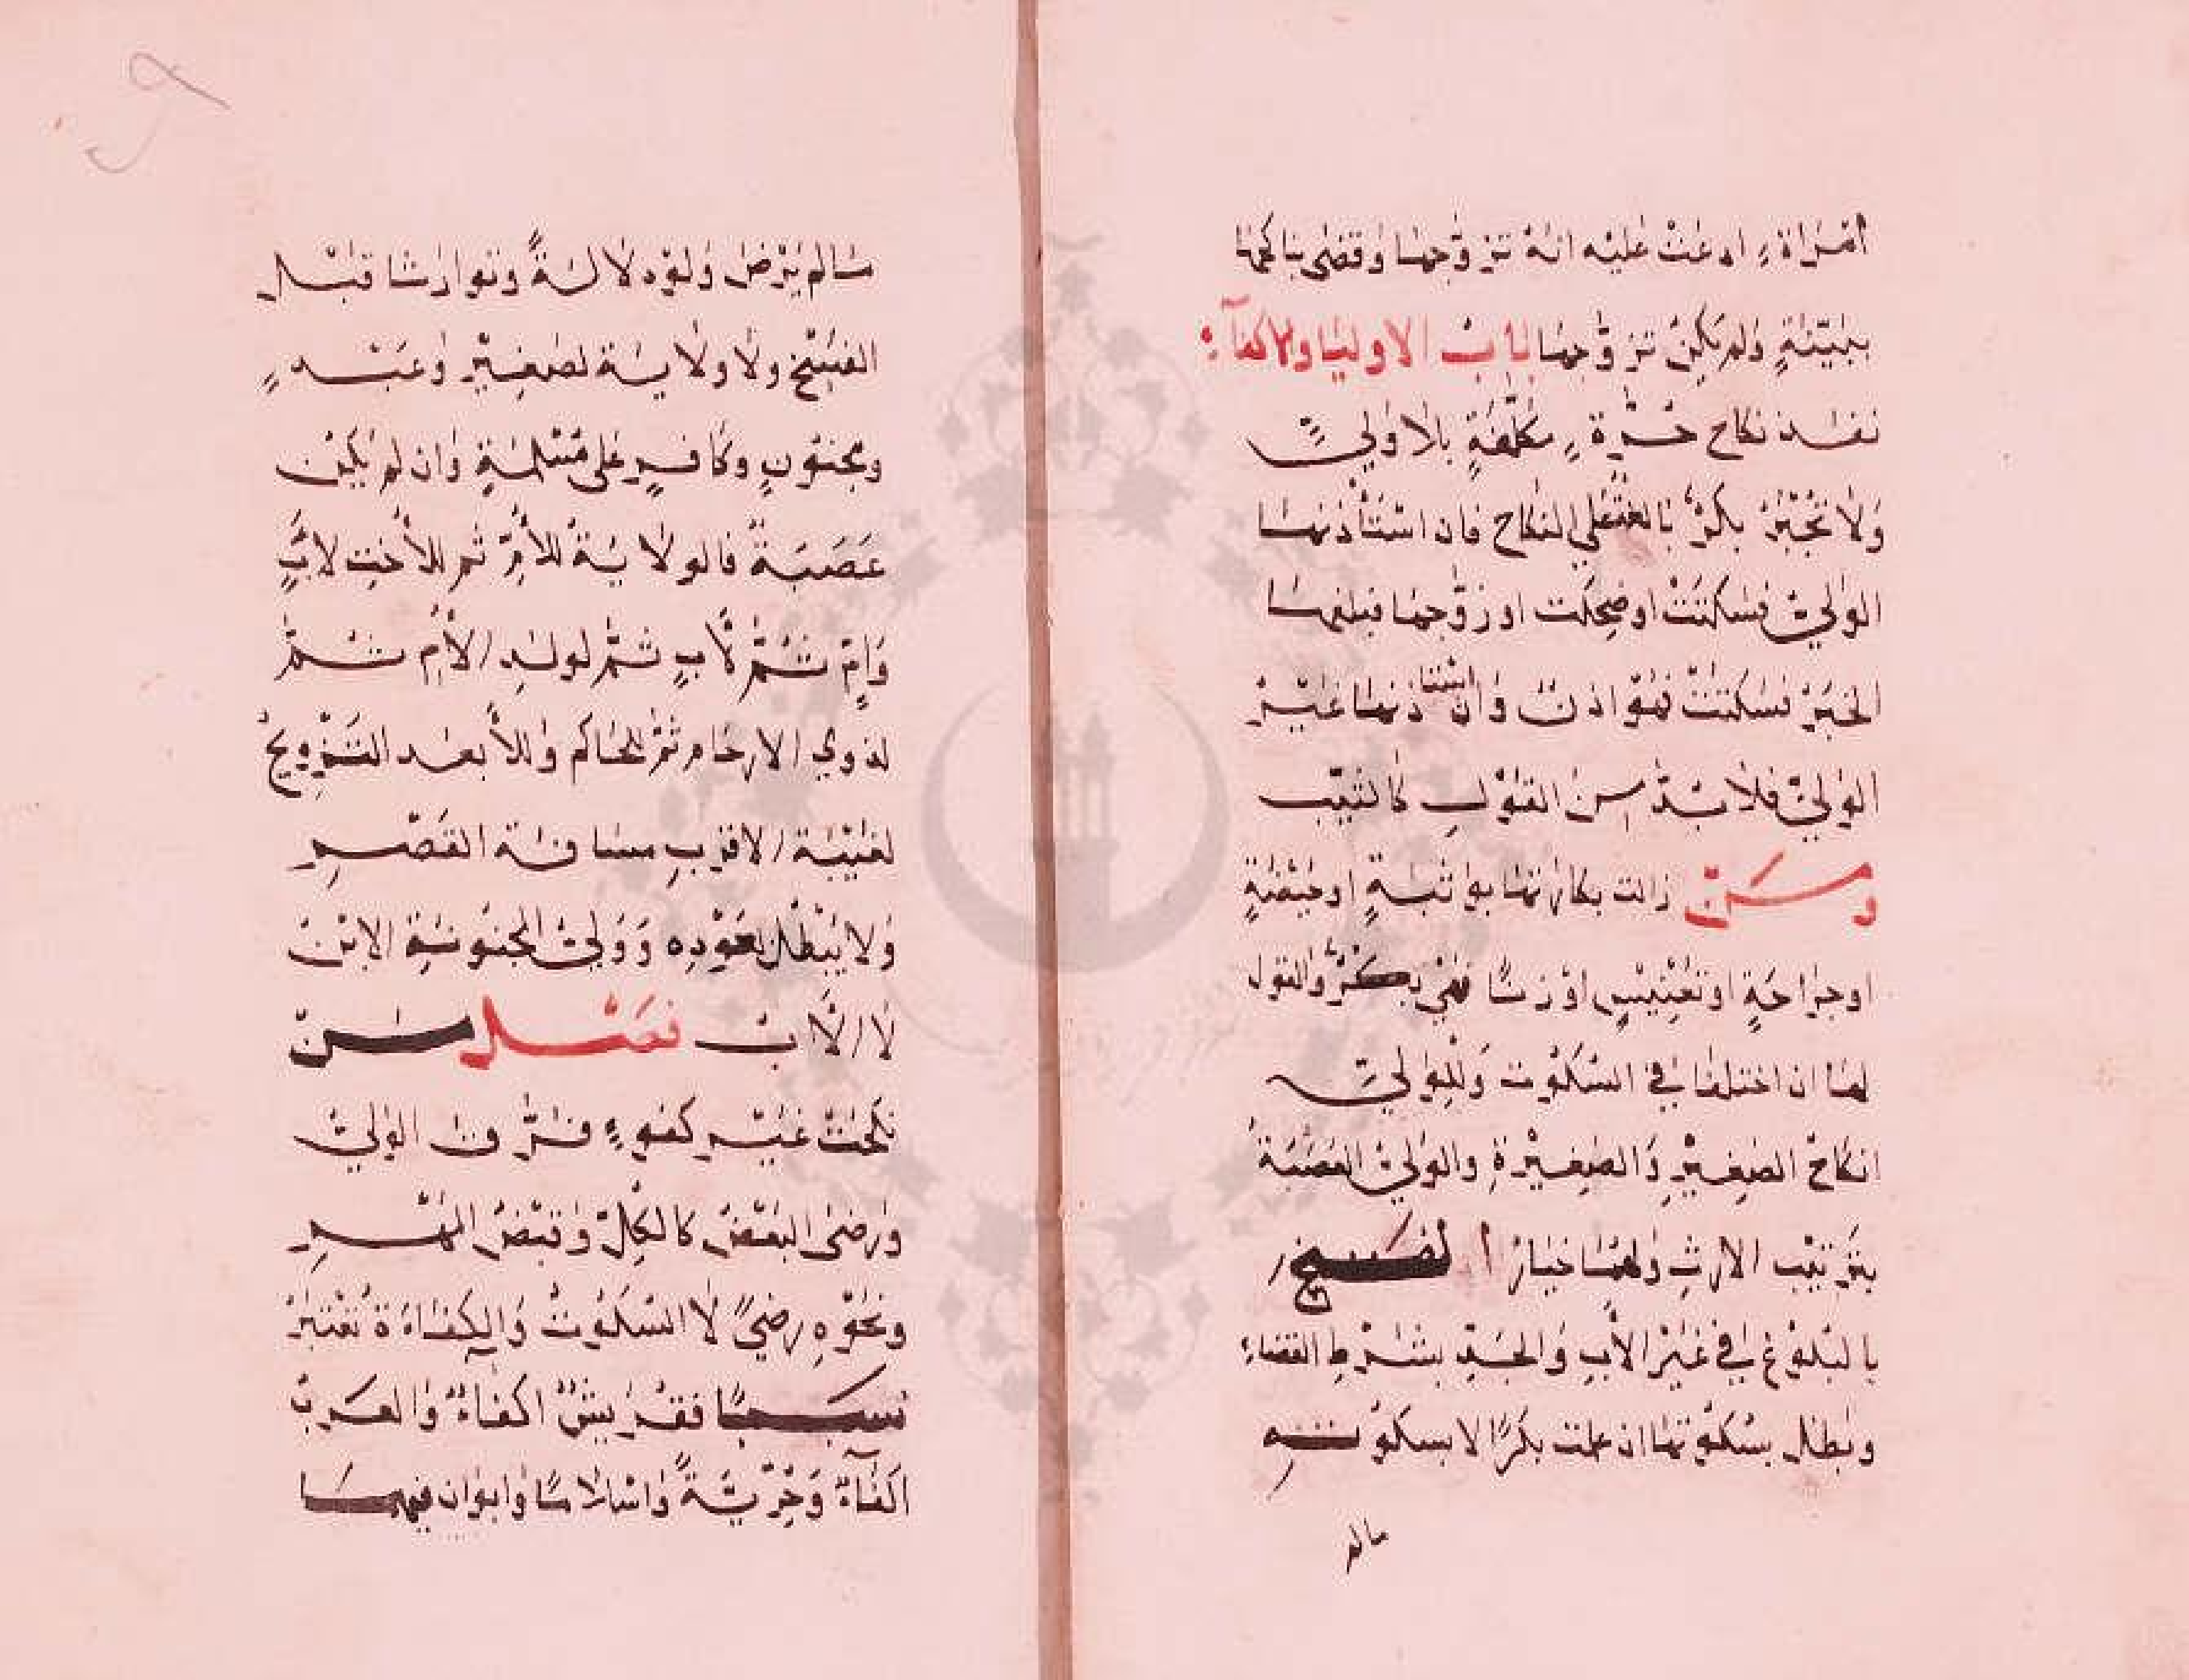 امْرَاةٍ ادعَتْ عَليْه انهُ تزوَّجهَا وَقضى بنا كحهَا
ببيّنةٍ ولم يكنْ تزوَّجهَا بَابُ الاوليَا والاكفآءِ
نفذ نكاح حُرَّةٍ مكلّفةٍ بلا وليٍّ
وَلا تُجْبَرُ بكرٌ بالغةٌ عَلي النكاح فان اسْتَأذنهَا
الوَليُّ فسَكتَتْ اوضحِكت او زوَّجهَا فبلغهَا
الخبَرُ فسَكتَتْ فهُوَ اذنٌ وَان اسْتَاذنهَا غيْرُ
الوَليِّ فلا بُدَّ مِنَ القوْلِ كالثيّب
ومَنْ زالت بكارتهَا بوَثبةٍ اوحَيْضةٍ
اوجراحَةٍ اوتَعْنِيسٍ اوْ زنًا فهيَ بكْرٌ وَالقول
لهَا ان اختلفا في السّكوُت وَلِلوَليِّ
انكاحُ الصّغِيْرِ وَالصّغِيْرةِ والوَليُّ العَصَبَةُ
بتَرتيْب الارثِ وَلهُمَا خيَارُ الفسخ
بالبُلوُغ في غَيْر الأبِ وَالجَدِّ بشرْطِ القضاءِ
وبَطل بسُكوُتهَا ان علمت بكرًا لا بسكوُته
مالم
مَالم يَرْضَ وَلوْ دلالةً وتوارثا قبْل
الفسْخ ولا ولاية لصَغِيْرٍ وَعَبْدٍ
ومجنوُنٍ وكافرٍ عَلى مُسْلمَةٍ وَان لم يكن
عَصَبَةٌ فالولايَةُ للأمِّ ثم للأختِ لأبٍ
وَامٍّ ثمَّ لأبٍ ثمَّ لولدِ الأمِّ ثمَّ
لذوي الارحَام ثمَّ للحَاكم وَللأبعد التّزويجُ
لغَيْبَة الاقرَبِ مسَافة القصْرِ
وَلا يَبْطل بعَوْدِه وَوَليُّ المجنونةِ الابنُ
لا الأبُ فصْل مَنْ
نكحَتْ غيْر كفوءٍ فرَّق الوَليُّ
وَرضىَ البَعْضُ كالكلّ وَقبْضُ المَهْرِ
ونحْوِهِ رضىً لا السّكوُتُ وَالكفاءَةُ تعْتبَرُ
نسَبًا فقرَيشٌ اكفاءٌ وَالعَرَبُ
اكفآءٌ وَحُرّيَّةً وَاسْلامًا وَابوَان فيهمَا